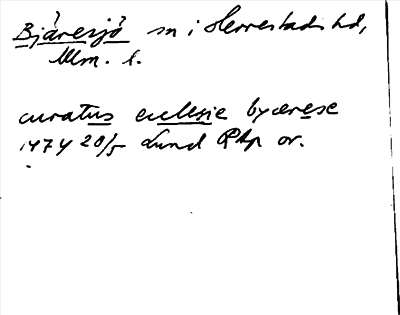 Bjäresjö sn i Herrestads hd,
Mlm. l.
curatus ecclesie byærese
1474 20/5 Lund Php or.